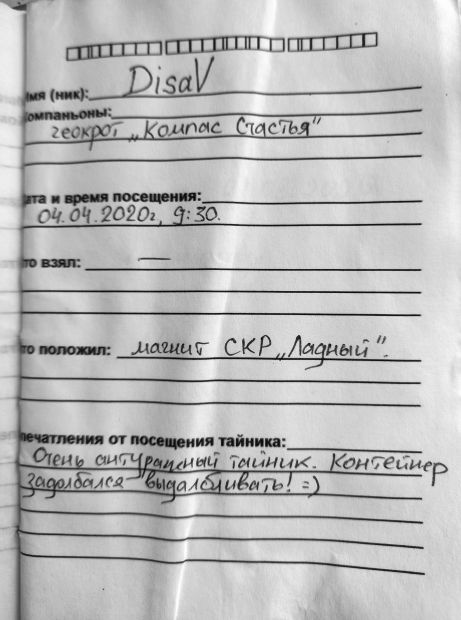 мя (ник): DisaV
омпаньоны:
геокрот „Компас Счастья"
ата и время посещения:
04.04.2020г, 9:30.
то взял: —
то положил: магнит СКР „Ладный".
печатления от посещения тайника:
Очень антуражный тайник. Контейнер
задолбался выдалбливать! =)